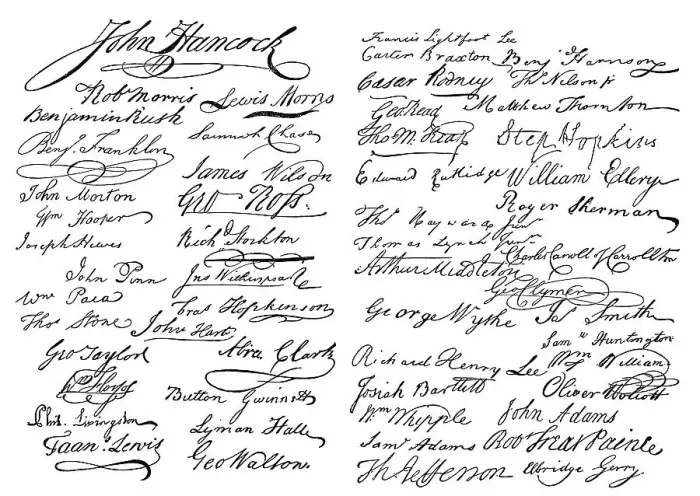 John Hancock
H
Robt Morris Lewis Morris
Benjamin Rush Samuel Chase
Benj. Franklin
James Wilson
John Morton Geo Ross.
Wm Hooper
Joseph Hewes Richd Stockton
John Penn Jno Witherspoon
Wm Paca Fras Hopkinson
Thos Stone John Hart
Geo Taylor Abra Clark
Wm Floyd Button Gwinnett
Phil. Livingston Lyman Hall
Frans Lewis Geo Walton.
Francis Lightfoot Lee
Carter Braxton Benj Harrison
Caesar Rodney Thos Nelson jr
Geo Read Matthew Thornton
Tho M. Kean Step. Hopkins
Edward Rutledge William Ellery
Roger Sherman
Thos Heyward Junr
Thomas Lynch Junr Charles Carroll of Carrollton
Arthur Middleton
Geo Clymer
George Wythe Jas Smith
Saml Huntington
Richard Henry Lee Wm Williams
Josiah Bartlett Oliver Wolcott
Wm Whipple John Adams
Saml Adams Robt Treat Paine
Th Jefferson Elbridge Gerry